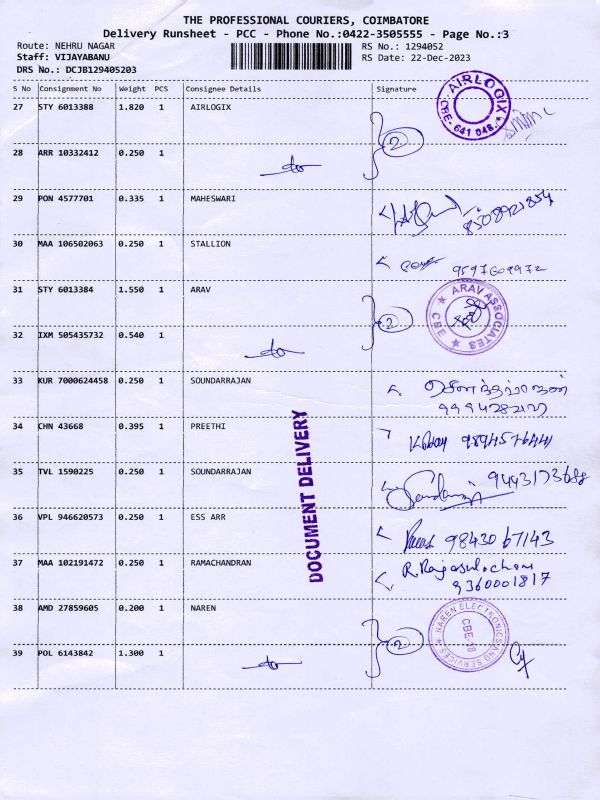 THE PROFESSIONAL COURIERS, COIMBATORE
Delivery Runsheet - PCC - Phone No.:0422-3505555 - Page No.:3
Route: NEHRU NAGAR RS No.: 1294052
Staff: VIJAYABANU RS Date: 22-Dec-2023
DRS No.: DCJB129405203
S No Consignment No Weight PCS Consignee Details Signature
27 STY 6013388 1.820 1 AIRLOGIX
AIRLOGIX CBE-641 048.
2
28 ARR 10332412 0.250 1 do
29 PON 4577701 0.335 1 MAHESWARI
30 MAA 106502063 0.250 1 STALLION
9597609972
31 STY 6013384 1.550 1 ARAV
ARAV ASSOCIATES CBE
2
32 IXM 505435732 0.540 1 do
33 KUR 7000624458 0.250 1 SOUNDARRAJAN
34 CHN 43668 0.395 1 PREETHI
35 TVL 1590225 0.250 1 SOUNDARRAJAN
9443173688
36 VPL 946620573 0.250 1 ESS ARR
98430 67143
37 MAA 102191472 0.250 1 RAMACHANDRAN
R. Rajasulochana
9360001817
DOCUMENT DELIVERY
38 AMD 27859605 0.200 1 NAREN
NAREN ELECTRONICS AND SERVICES CBE-18
2
39 POL 6143842 1.300 1 do